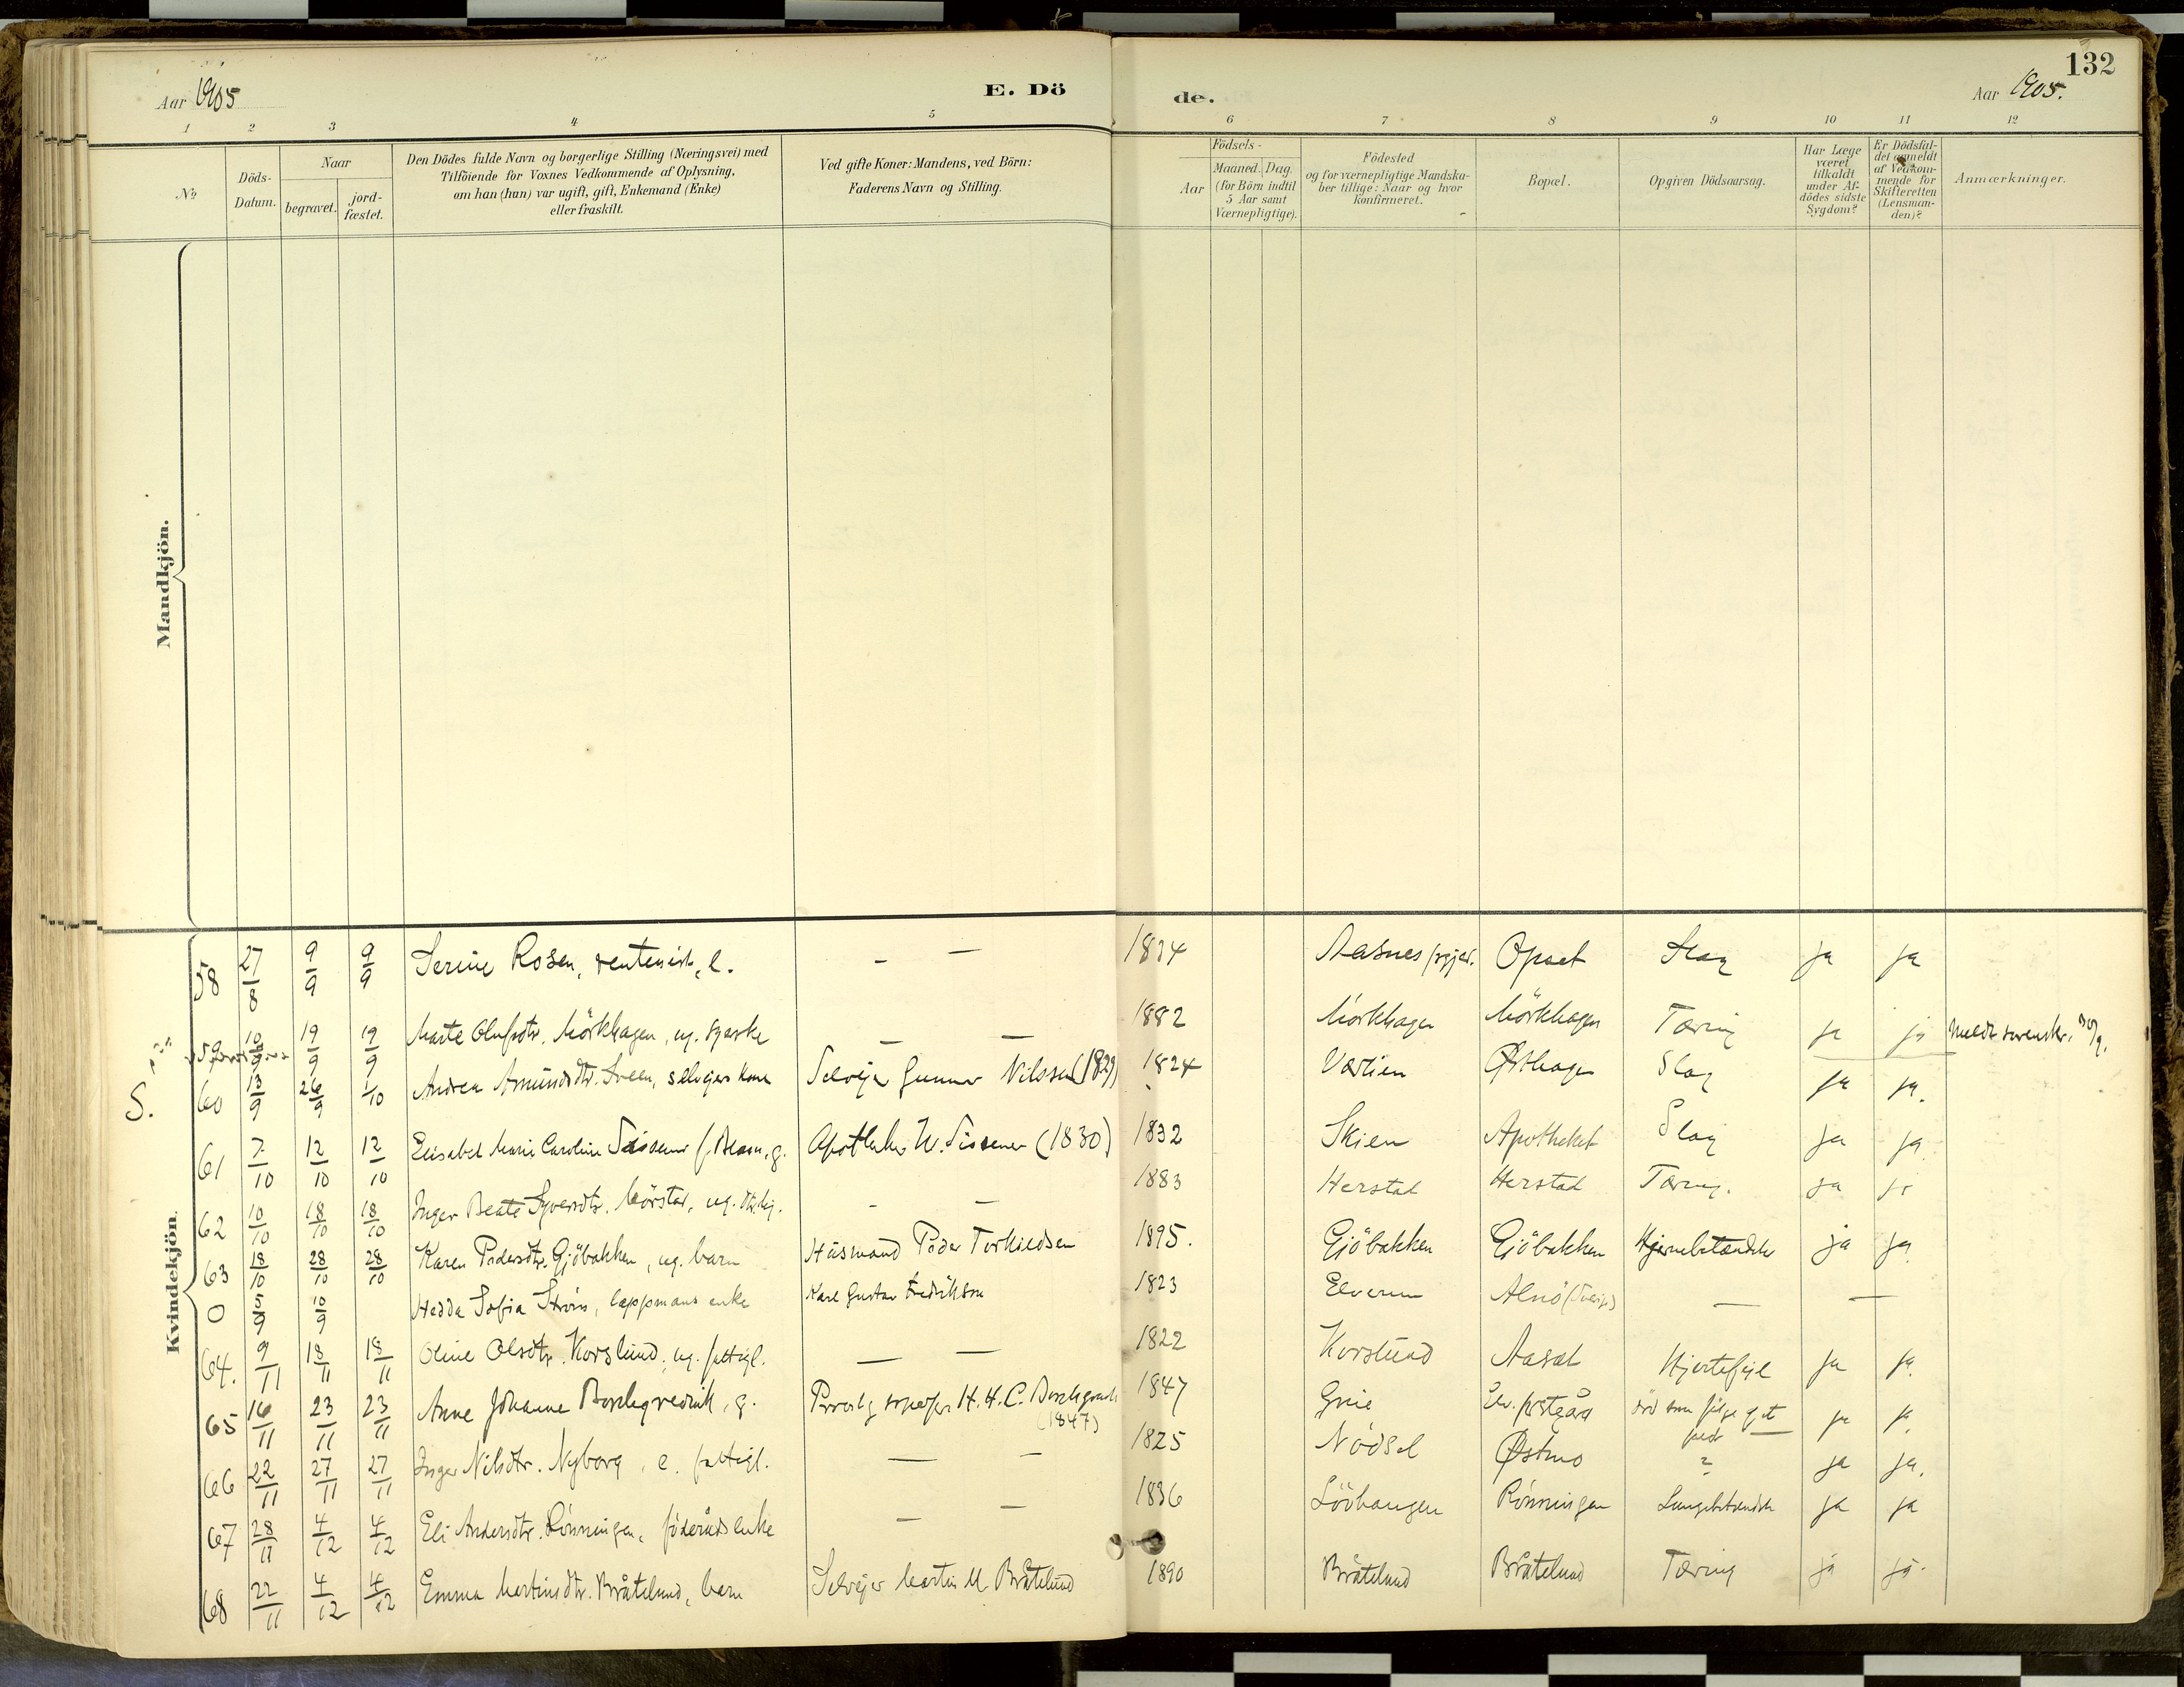 132
Aar 1905
E. Dö
de.
Aar 1905.
1 2 3 4 5 6 7 8 9 10 11 12
No
Döds-
Datum.
Naar
begravet.
jord-
fæstet.
Den Dödes fulde Navn og borgerlige Stilling (Næringsvei) med
Tilföiende for Voxnes Vedkommende af Oplysning,
om han (hun) var ugift, gift, Enkemand (Enke)
eller fraskilt.
Ved gifte Koner: Mandens, ved Börn:
Faderens Navn og Stilling.
Födsels-
Aar
Maaned. Dag.
(for Börn indtil
5 Aar samt
Værnepligtige).
Födested
og for værnepligtige Mandska-
ber tillige: Naar og hvor
konfirmeret.
Bopæl.
Opgiven Dödsaarsag.
Har Læge
været
tilkaldt
under Af-
dödes sidste
Sygdom?
Er Dödsfal-
det anmeldt
af Vedkom-
mende for
Skifteretten
(Lensman-
den)?
Anmærkninger.
Mandkjön.
Kvindekjön.
58 27/8 9/9 9/9 Serine Rosen, rentenist, e. - — 1834 Aasnes Opset Slag ja ja
59 10/9 19/9 19/9 Marte Olufsdtr. Mörkhagen, ug. — — 1882 Mörkhagen Mörkhagen Tæring ja ja
S. 60 13/9 26/9 1/10 Andrea Amundsdtr. Sveen, selveiers kone Selveier Gunnar Nilssen (1829) 1824 Værlien Østhagen Slag ja ja.
61 7/10 12/10 12/10 Elisabet Marie Caroline g. Apotheker (1830) 1832 Skien Apotheket Slag ja ja
62 10/10 18/10 18/10 Inger Beate Syversdtr. ug. - — 1883 Herstad Herstad Tæring. ja ja
63 18/10 28/10 28/10 Karen Pedersdtr. Gjöbakken, ug. barn Husmand Peder Torkildsen 1895. Gjöbakken Gjöbakken Hjernebetændelse ja ja
0 5/9 10/9 Hedda Sofia Ström, enke Karl Gustav Fredrikson 1823 Elverum Alnö — —
64. 9/11 18/11 18/11 Oline Olsdtr. Korslund, ug. fattigl. — — 1822 Korslund Aasal Hjertefeil ja ja.
65 16/11 23/11 23/11 Anne Johanne g. H. H. C.
(1847) 1847 Grue död som følge af et
ja ja
66 22/11 27/11 27/11 Inger Nilsdtr. Nyborg, e. fattigl. — — 1825 Nödsel Østmo ? ja ja.
67 28/11 4/12 4/12 Eli Andersdtr. Rönningen, föderåds enke - — 1836 Löbhaugen Rönningen Lungebetændelse ja ja
68 22/11 4/12 4/12 Emma Martinsdtr. Bråtelund, barn Selveier Martin M Bråtelund 1890 Bråtelund Bråtelund Tæring ja ja.